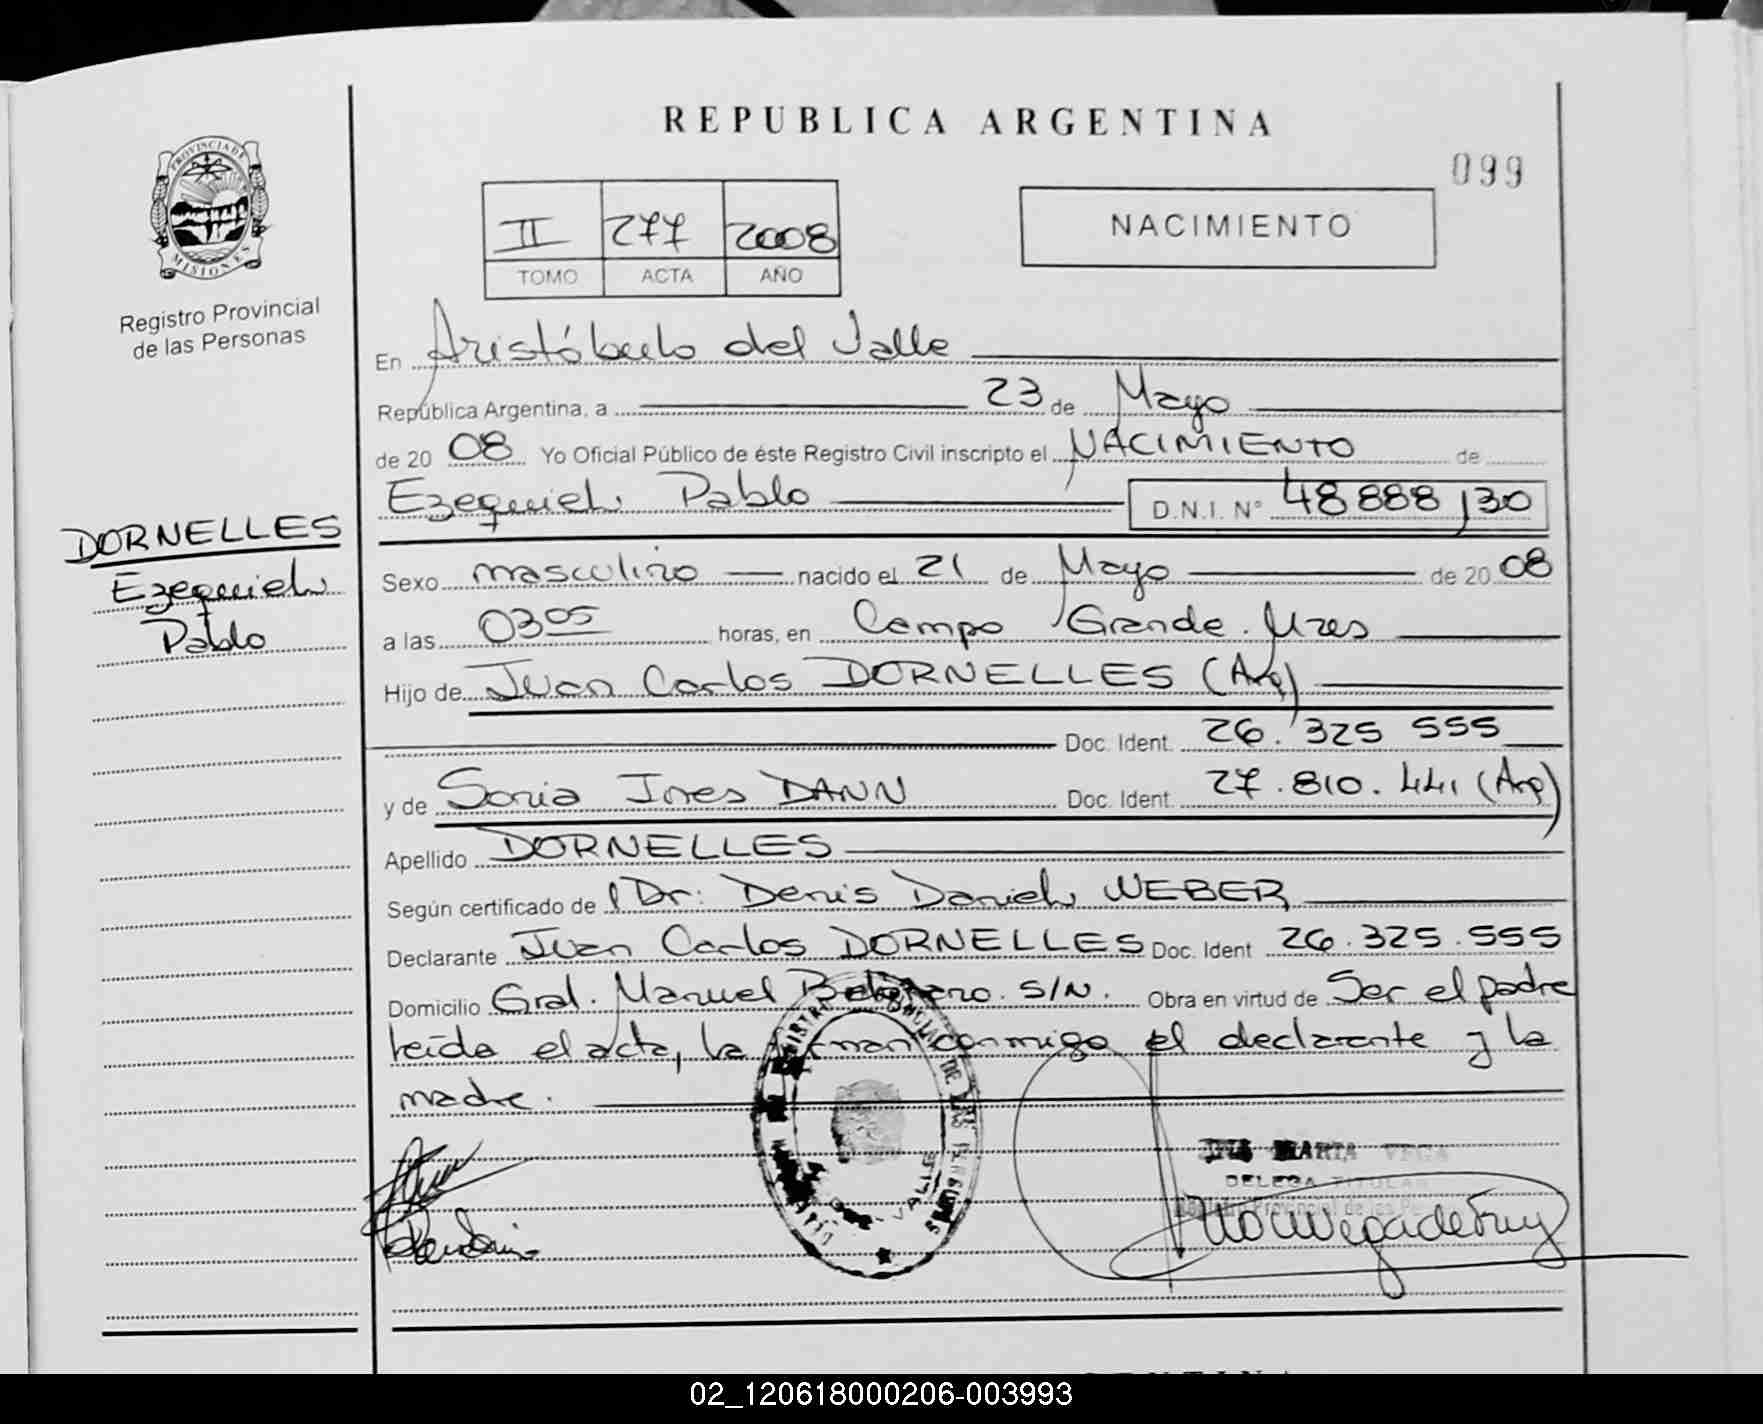 REPUBLICA ARGENTINA
099
PROVINCIA DE
MISIONES
Registro Provincial
de las Personas
II 277 2008
TOMO ACTA AÑO
NACIMIENTO
En Aristóbulo del Valle
República Argentina, a 23 de Mayo
de 20 08 Yo Oficial Público de éste Registro Civil inscripto el NACIMIENTO de
Ezequiel Pablo D.N.I. N° 48 888 130
DORNELLES
Ezequiel
Pablo
Sexo masculino nacido el 21 de Mayo de 20 08
a las 03 05 horas, en Campo Grande. Mnes
Hijo de Juan Carlos DORNELLES (Arg)
Doc. Ident. 26.325 555
y de Sonia Ines DANN Doc. Ident 27.810.441 (Arg)
Apellido DORNELLES
Según certificado de Dr: Denis Daniel WEBER
Declarante Juan Carlos DORNELLES Doc. Ident 26.325.555
Domicilio Gral. Manuel Belgrano. S/N. Obra en virtud de Ser el padre
leída el acta, la firman conmigo el declarante y la
madre.
MARTA VEGA
DELEGA TITULAR
Registro Provincial de las Pe
VALLE
02_120618000206-003993